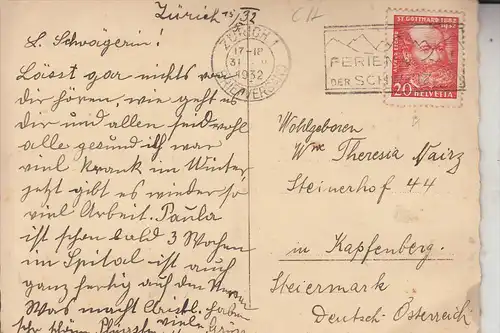 Zürich 15/5 32
L. Schwägerin!
Lässt gar nichts von
dir hören, wie geht es
dir und allen seid wohl
alle gesund ich war
viel krank im Winter,
jetzt gibt es wieder so
viel Arbeit. Paula
ist schon bald 3 Wochen
im Spital ist auch
ganz fertig auf den
Was macht haben
viele
CH
ZÜRICH 1
17-18
1932
FERIEN
DER SCH
ST. GOTTHARD 1882
20 HELVETIA
Wohlgeboren
Wwe Theresia Mairz
Steinerhof 44
in Kapfenberg.
Steiermark
Deutsch-Österreich